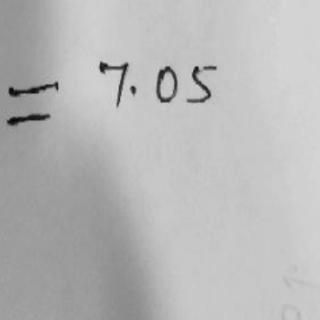 = 7.05